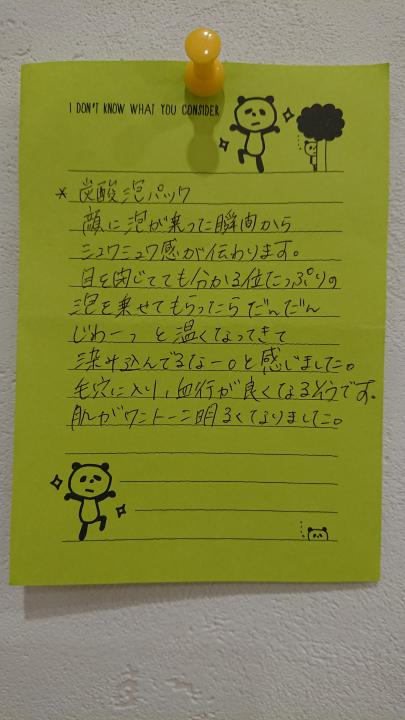 I DON'T KNOW WHAT YOU CONSIDER
* 炭酸泡パック
顔に泡が乗った瞬間から
シュワシュワ感が伝わります。
目を閉じてても分かる位たっぷりの
泡を乗せてもらったらだんだん
じわーっと温くなってきて
染み込んでるなー。と感じました。
毛穴に入り、血行が良くなるそうです。
肌がワントーン明るくなりました。